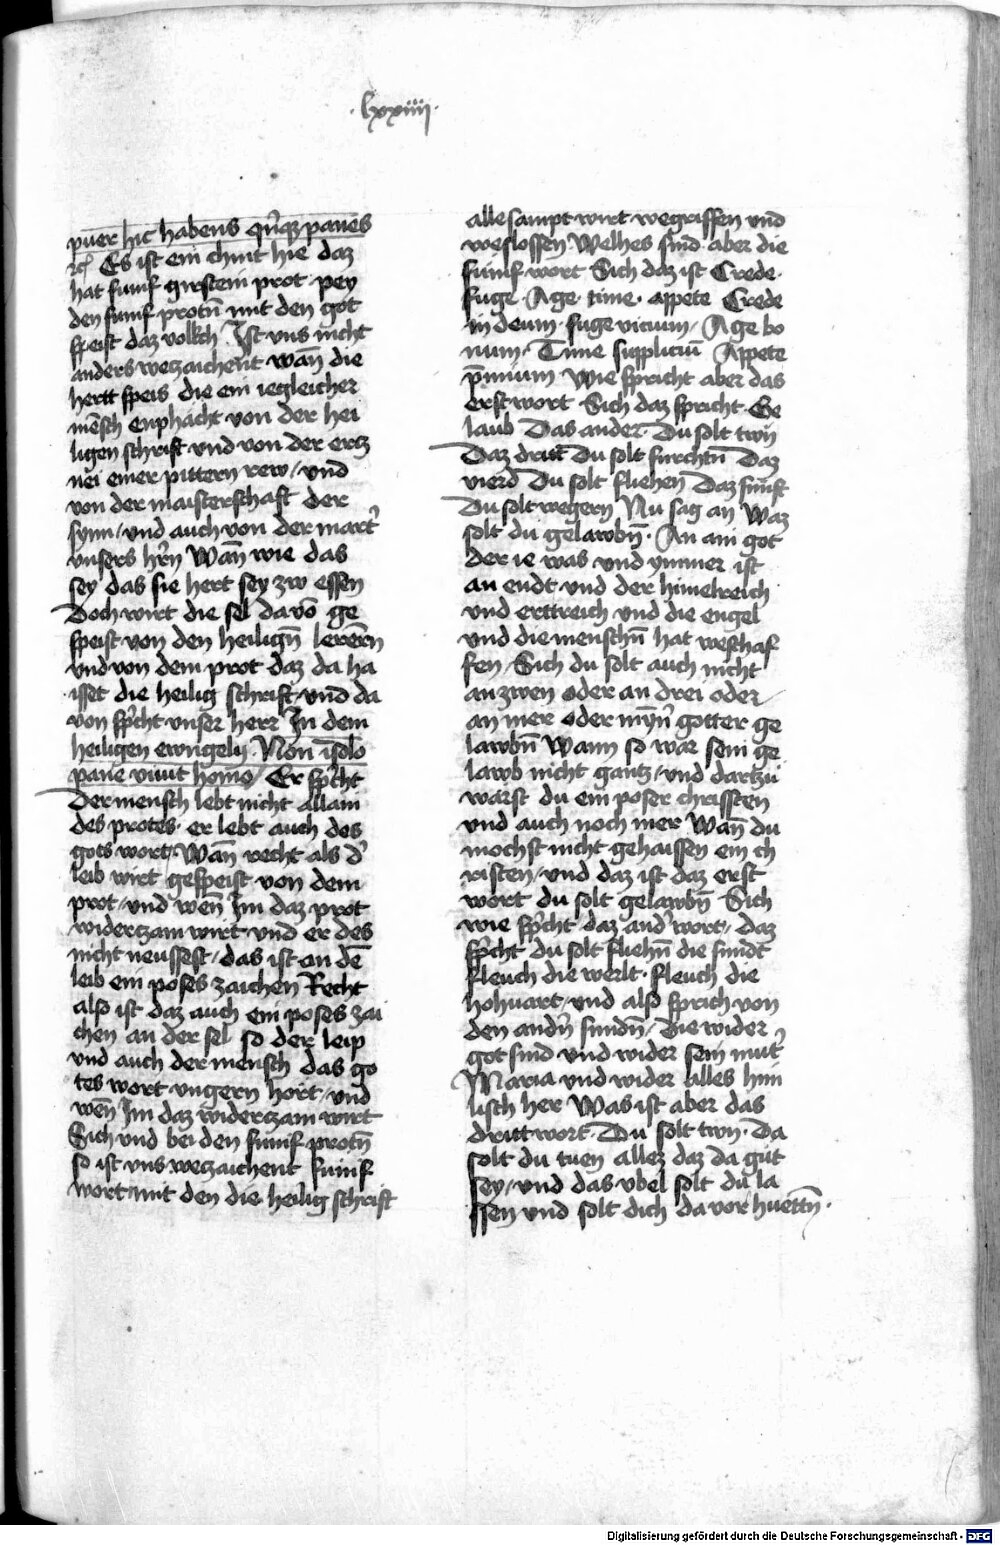 ·lxxiiij·
puer hic habens qūqȝ panes
ꝛcꝭ Es ist ein chint hie daz
hat funf girstein prot · pey
den funf protn̄ mit den got
speist daz volkch Ist vns nicht
anders wetzaichent wan̄ die
hertt speis die ein iegleicher
mēsch enphacht von der hei
ligen schrift vnd von der ertz
nei einer pittern rew / vnd
von der maisterschaft der
synn / vnd auch von der mart̛
vnsers hr̄n Wan̄ wie das
sey das sie hert sey zw essen
Doch wirt die sel dauō ge
speist von den heilign̄ lerērn
vnd von dem prot daz da ha
isset die heilig schrift / vnd da
von sp̛cht vnser herr In dem
heiligen ewngelij · Non ī solo
pane viuit homo / Er sp̛cht
Der mensch lebt nicht allain
des protes · er lebt auch des
gots wort Wan̄ recht als d̛
leib wirt gespeist von dem
prot / vnd wen̄ Im daz prot
widerczam wirt vnd er des
nicht neussest / das ist an dē
leib ein poses zaichen Recht
also ist daz auch ein poses zai
chen an der sel so der leip
vnd auch der mensch das go
tes wort vngern hort / vnd
wen̄ Im daz widerczam wirt
Sich vnd bei den funf protn̄
so ist vns wetzaichent funf
wort mit den die heilig schrift
alle sampt wirt wegriffen vnd
weslossen Welhes sind aber die
funf wort Sich daz ist Crede ·
fuge · Age · time · appete Crede
in deum · fuge vicium / Age bo
num · Time suppliciū Appete
p̄mium Wie spricht aber das
erst wort Sich daz spricht · Ge
laub Das ander · Du solt twn
Daz dritt Du solt furchtn̄ Daz
vierd Du solt fliehen Daz funft
Du solt wegern Nu sag an Waz
solt du gelawbn̄ · An ain got
der ie was vnd ymmer ist
an endt vnd der himelreich
vnd erttreich vnd die engel
vnd die menschn̄ hat weschaf
fen / Sich du solt auch nicht
an zwen oder an drei oder
an mer oder myn̛ gotter ge
lawbn̄ Wann so war sein ge
lawb nicht gantz / vnd dartzu
warst du ein poser christten
vnd auch noch mer Wan̄ du
mochst nicht gehaissen ein ch
risten / vnd daz ist daz erst
wort du solt gelawbn̄ Sich
wie sp̛cht daz and̛ wort / daz
sp̛cht du solt fliehn̄ die sundt
fleuch die werlt · fleuch die
hohuart / vnd also sprich von
den and̛n sundn̄ / Die wider
got sind vnd wider sein mut̛
Maria vnd wider alles him
lisch her Was ist aber das
dritt wort Du solt twn · Da
solt du tuen allez daz da gut
sey / vnd das vbel solt du la
ssen vnd solt dich da vor huettn̄ ·
Digitalisierung gefördert durch die Deutsche Forschungsgemeinschaft - DFG